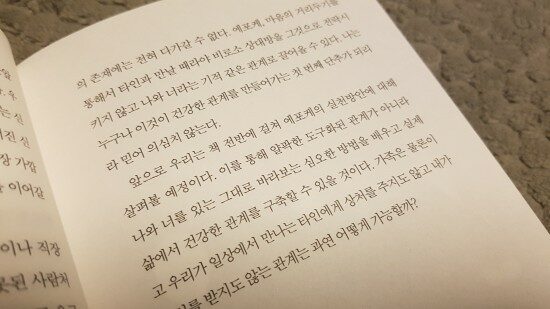 의 존재에는 전혀 다가갈 수 없다. 에포케, 마음의 거리두기를
통해서 타인과 만날 때라야 비로소 상대방을 그것으로 전락시
키지 않고 나와 너라는 기적 같은 관계로 끌어올 수 있다. 나는
누구나 이것이 건강한 관계를 만들어가는 첫 번째 단추가 되리
라 믿어 의심치 않는다.
앞으로 우리는 책 전반에 걸쳐 에포케의 실천방안에 대해
살펴볼 예정이다. 이를 통해 얄팍한 도구화된 관계가 아니라
나와 너를 있는 그대로 바라보는 심오한 방법을 배우고 실제
삶에서 건강한 관계를 구축할 수 있을 것이다. 가족은 물론이
고 우리가 일상에서 만나는 타인에게 상처를 주지도 않고 내가
받지도 않는 관계는 과연 어떻게 가능할까?
가깝
이어갈
이나 직장
못된 사람처